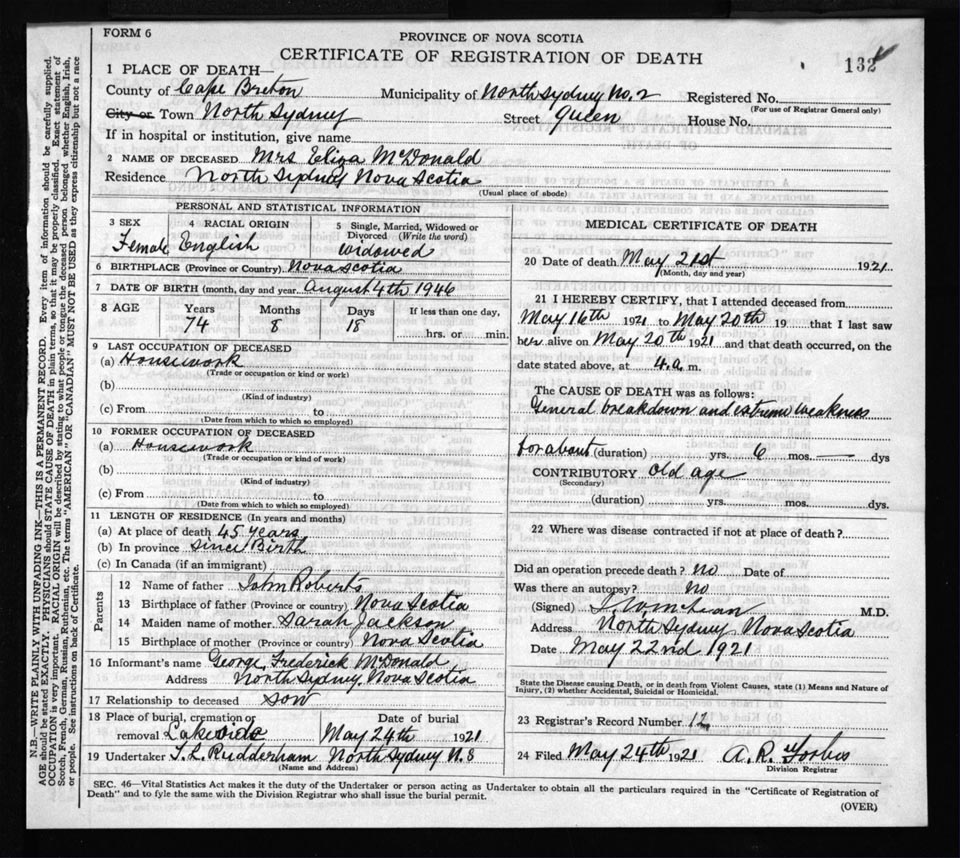 FORM 6
PROVINCE OF NOVA SCOTIA
CERTIFICATE OF REGISTRATION OF DEATH
132
1 PLACE OF DEATH—
County of Cape Breton Municipality of North Sydney No. 2 Registered No.
(For use of Registrar General only)
City or Town North Sydney Street Queen House No.
If in hospital or institution, give name
2 NAME OF DECEASED Mrs Eliza McDonald
Residence North Sydney Nova Scotia
(Usual place of abode)
PERSONAL AND STATISTICAL INFORMATION
3 SEX 4 RACIAL ORIGIN 5 Single, Married, Widowed or Divorced (Write the word)
Female English Widowed
6 BIRTHPLACE (Province or Country) Nova Scotia
7 DATE OF BIRTH (month, day and year August 4th 1946
8 AGE Years Months Days If less than one day,
74 8 18 hrs. or min.
9 LAST OCCUPATION OF DECEASED
(a) Housework
(Trade or occupation or kind or work)
(b)
(Kind of industry)
(c) From to
(Date from which to which so employed)
10 FORMER OCCUPATION OF DECEASED
(a) Housework
(Trade or occupation or kind of work)
(b)
(Kind of industry)
(c) From to
(Date from which to which so employed)
11 LENGTH OF RESIDENCE (In years and months)
(a) At place of death 45 years
(b) In province Since Birth
(c) In Canada (if an immigrant)
Parents
12 Name of father John Roberts
13 Birthplace of father (Province or country) Nova Scotia
14 Maiden name of mother Sarah Jackson
15 Birthplace of mother (Province or country) Nova Scotia
16 Informant's name George Frederick McDonald
Address North Sydney. Nova Scotia
17 Relationship to deceased son
18 Place of burial, cremation or removal Lakeside Date of burial May 24th 1921
19 Undertaker T. L. Rudderham North Sydney N.S
(Name and Address)
MEDICAL CERTIFICATE OF DEATH
20 Date of death May 21st 1921
(Month, day and year)
21 I HEREBY CERTIFY, that I attended deceased from
May 16th 1921 to May 20th 19 that I last saw
her alive on May 20th 1921 and that death occurred, on the
date stated above, at 4. a. m.
The CAUSE OF DEATH was as follows:
General breakdown and extreme weakness
for about (duration) yrs. 6 mos. — dys
CONTRIBUTORY Old age
(Secondary)
(duration) yrs. mos. dys.
22 Where was disease contracted if not at place of death?
Did an operation precede death? No Date of
Was there an autopsy? No
(Signed) M.D.
Address North Sydney Nova Scotia
Date May 22nd 1921
State the Disease causing Death, or in death from Violent Causes, state (1) Means and Nature of
Injury, (2) whether Accidental, Suicidal or Homicidal.
23 Registrar's Record Number 12
24 Filed May 24th 1921 A. R. Forbes
Division Registrar
SEC. 46—Vital Statistics Act makes it the duty of the Undertaker or person acting as Undertaker to obtain all the particulars required in the "Certificate of Registration of
Death" and to fyle the same with the Division Registrar who shall issue the burial permit.
(OVER)
N.B.—WRITE PLAINLY WITH UNFADING INK—THIS IS A PERMANENT RECORD. Every item of information should be carefully supplied.
AGE should be stated EXACTLY. PHYSICIANS should STATE CAUSE OF DEATH in plain terms, so that it may be properly classified. Exact statement of
OCCUPATION is very important. RACIAL ORIGIN will be described by stating to what people or tongue the deceased person belonged whether English, Irish,
Scotch, French, German, Russian, Ruthenian, etc. The terms "AMERICAN" OR "CANADIAN" MUST NOT BE USED as they express citizenship but not a race
or people. See instructions on back of Certificate.